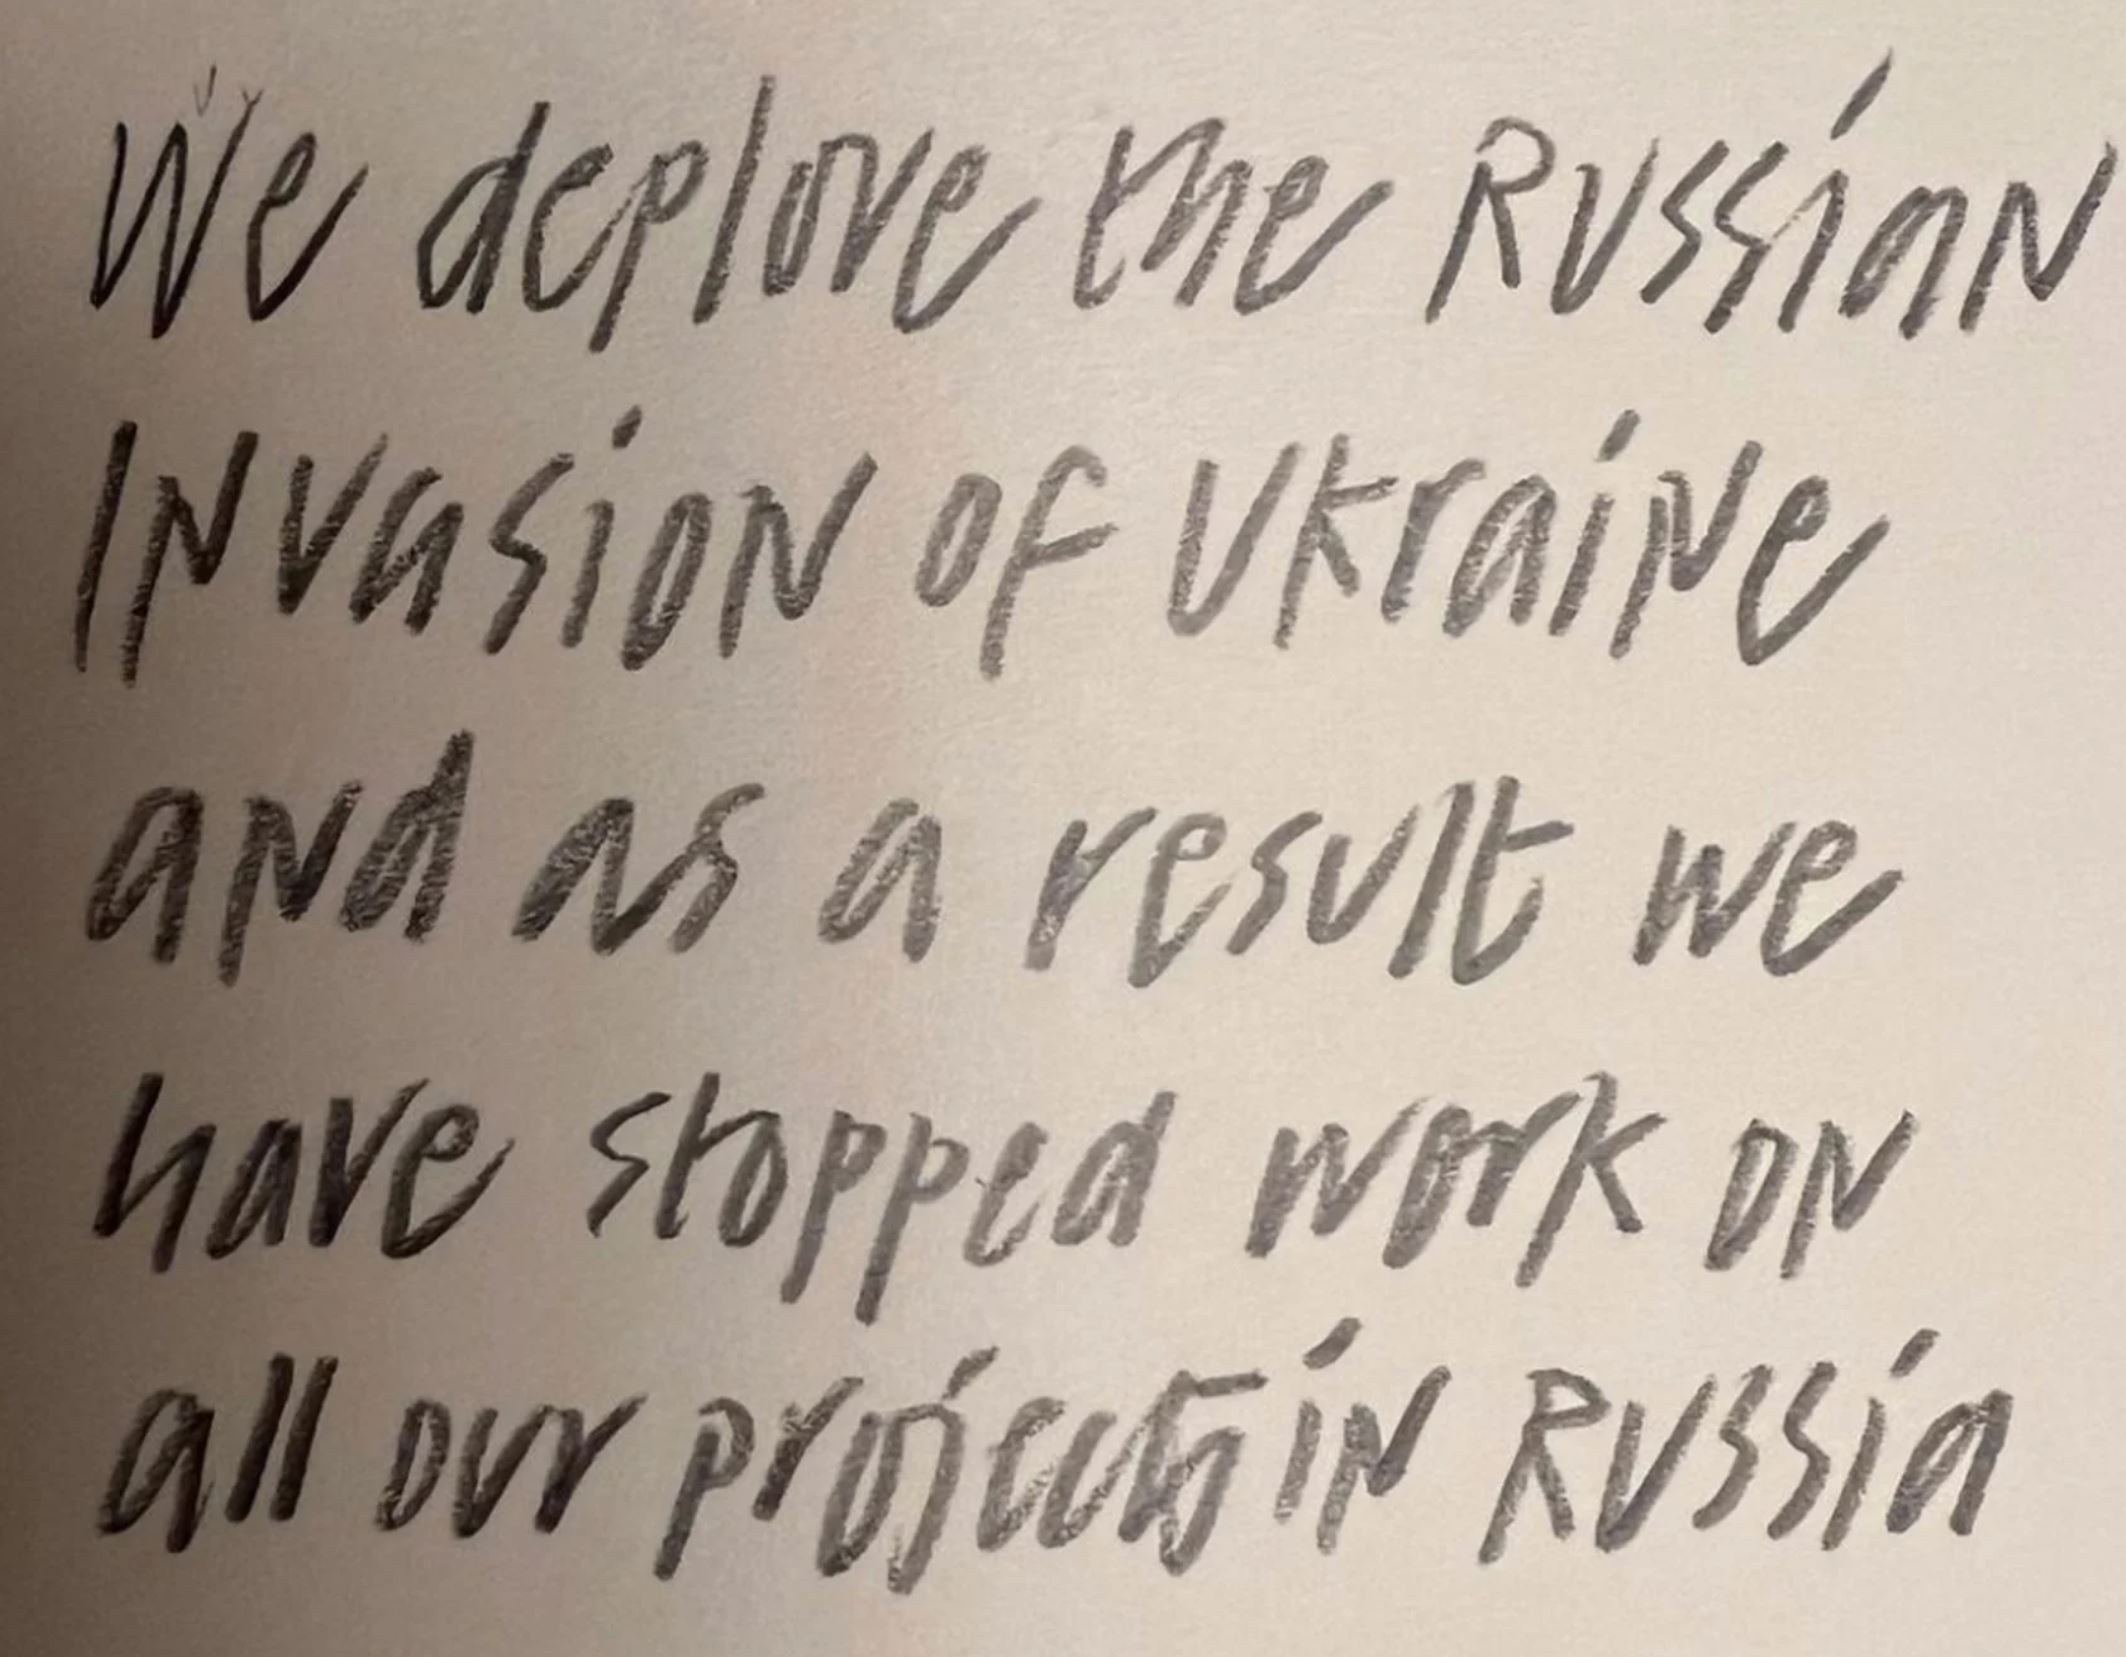 We deplore the Russian
Invasion of Ukraine
and as a result we
have stopped work on
all our projects in Russia